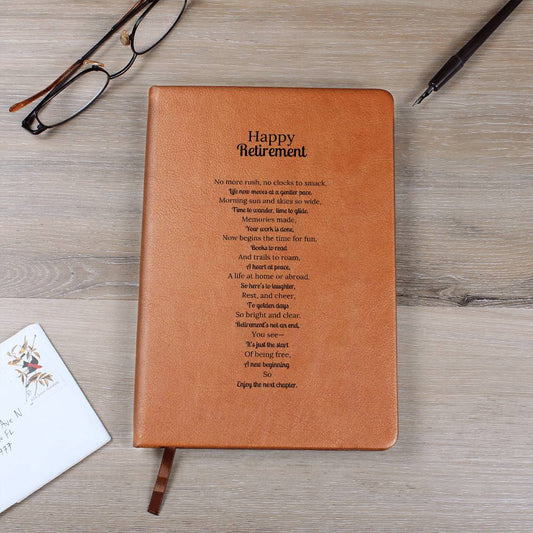 Happy
Retirement
No more rush, no clocks to smack,
Life now moves at a gentler pace.
Morning sun and skies so wide,
Time to wander, time to glide.
Memories made,
Your work is done,
Now begins the time for fun.
Books to read
And trails to roam,
A heart at peace,
A life at home or abroad.
So here's to laughter,
Rest, and cheer,
To golden days
So bright and clear.
Retirement's not an end,
You see—
It's just the start
Of being free,
A new beginning.
So
Enjoy the next chapter.
Ave N
FL
977